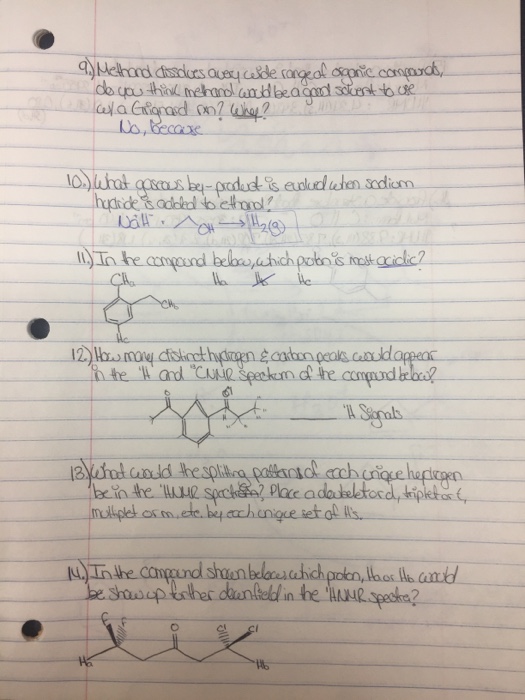 9.) Methanol dissolves a very wide range of organic compounds,
do you think methanol would be a good solvent to use
w/ a Grignard rxn? Why?
No, Because
10.) What gaseous by-product is evolved when sodium
hydride is added to ethanol?
NaH · OH → H2(g)
11.) In the compound below, which proton is most acidic?
CHa Hb Hc
CHb
Hc
12.) How many distinct hydrogen & carbon peaks would appear
in the 'H and 13CNMR spectrum of the compound below?
O O
'H Signals
13.) What would the splitting patterns of each unique hydrogen
be in the 'HNMR spectra? Place a doublet or d, triplet or t,
multiplet or m, etc. by each unique set of H's.
14.) In the compound shown below which proton, Ha or Hb would
be show up further downfield in the 'HNMR spectra?
F F O Cl Cl
Ha Hb